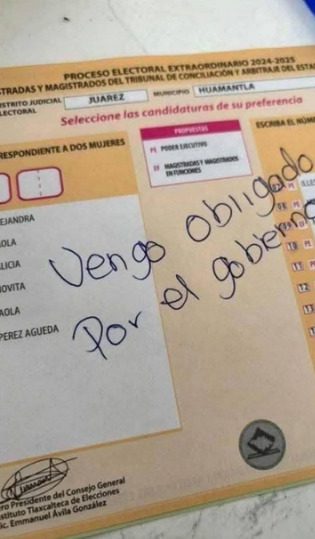 PROCESO ELECTORAL EXTRAORDINARIO 2024-2025
STRADAS Y MAGISTRADOS DEL TRIBUNAL DE CONCILIACIÓN Y ARBITRAJE DEL ESTA
STRITO JUDICIAL JUAREZ MUNICIPIO HUAMANTLA
LECTORAL
Seleccione las candidaturas de su preferencia
RESPONDIENTE A DOS MUJERES
PROPUESTAS
PE PODER EJECUTIVO
EF MAGISTRADAS Y MAGISTRADOS
EN FUNCIONES
ESCRIBA EL NÚM
EJANDRA
OLA
LICIA
OVITA
AOLA
PEREZ AGUEDA
Vengo obligado
Por el gobierno
10
11
12
13
ro Presidente del Consejo General
stituto Tlaxcalteca de Elecciones
ic. Emmanuel Ávila González